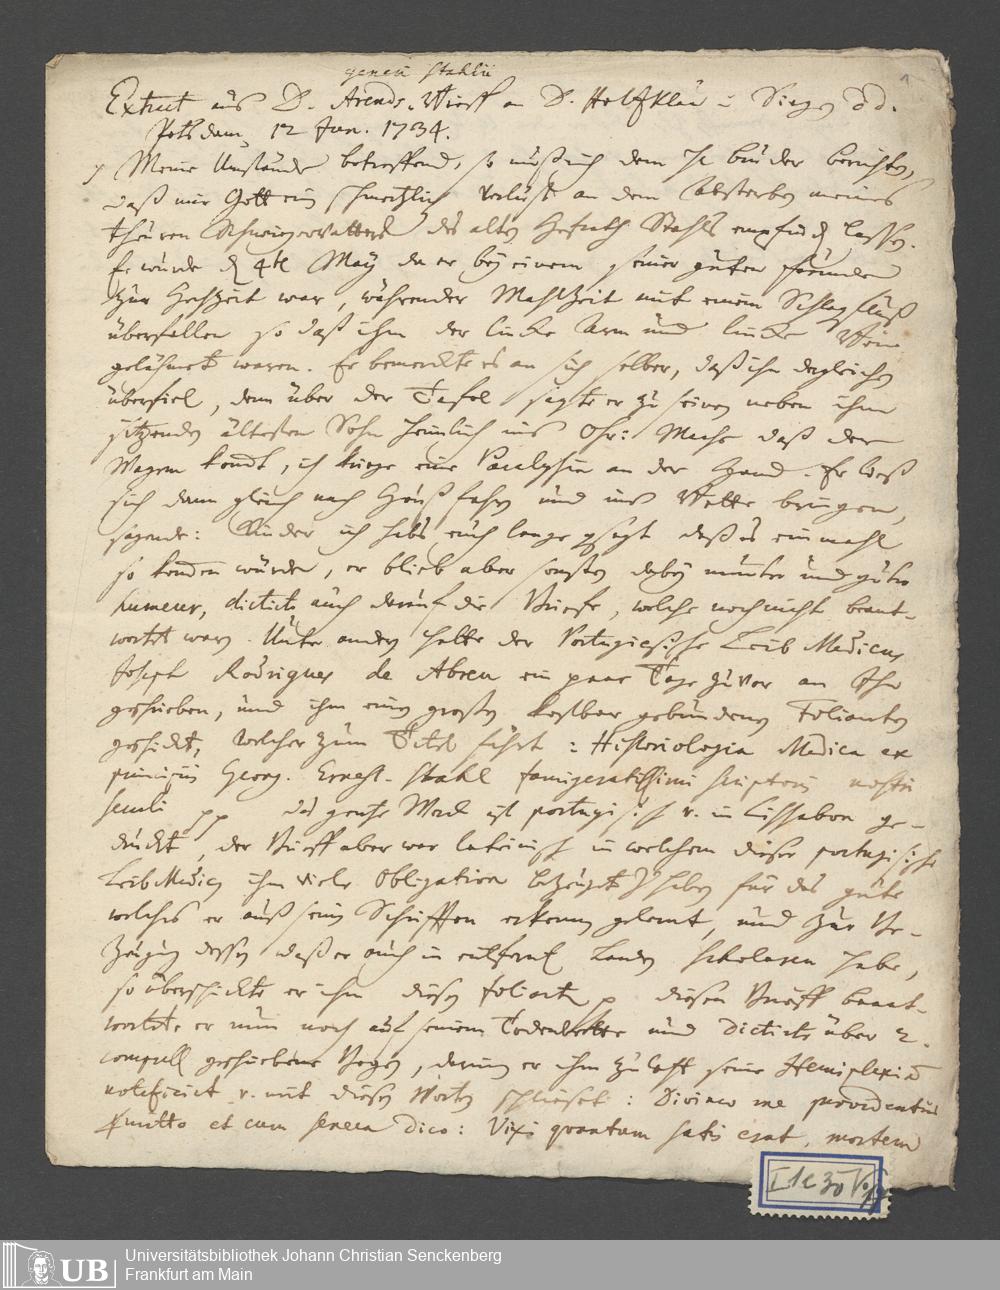 generi Stahlii
1
Extract aus D. Arends. Brieff an D. Holtzklau in Siegen dd.
Potsdam, 12 Jan. 1734.
Meine Umstände betreffend, so muß ich dem Hn bruder berichten,
daß mir Gott ein schmertzlich Verlust an dem Absterben meines
theuren Schwiegervatters des alten Hofrath Stahls empfinden lassen.
Er wurde d 4te May da er bey einem seiner guten freunde
zur Hochzeit war, währender Mahlzeit mit einem Schlagfluß
überfallen so daß ihm der lincke Arm und lincke Bein
gelähmet waren. Er bemerckte es an sich selber, daß ihn dergleichen
überfiel, denn über der Tafel sagte er zu seinen neben ihm
sitzenden ältesten Sohn heimlich ins Ohr: Mache daß der
Wagen komt, ich kriege eine Paralysin an der Hand. Er ließ
sich dann gleich nach Hauß fahren und ins Bette bringen,
sagende: Kinder ich habs euch lange gesagt daß es einmahl
so kommen würde, er blieb aber sonsten dabey munter und guten
humeur, dictirte auch darauf die Briefe, welche noch nicht beant-
wortet waren. Unter andern hatte der Portugiesische Leib Medicus
Joseph Rodrigues de Abreu ein paar Tage zuvor an Ihn
geschrieben, und ihm einen grossen kostbar gebundenen Folianten
geschickt, welcher zum Titel führt: Historiologia Medica ex
principiis Georg. Ernest. Stahl famigeratissimi scriptoris nostri
seculi pp das gantze Werck ist portugisisch u. in Lissabon ge-
druckt, der Brieff aber war lateinisch in welchem dieser portugisische
Leib Medicus ihm viele Obligation bezeugete zu haben für das gute
welches er auß sein Schrifften erkennen gelernt, und zur Be-
zeugung dessen daß er auch in entfernt Landen Scholaren habe,
so überschickte er ihm diesen foliante p diesen Brieff beant-
wortete er nun noch auf seinem Todenbette und dictirte über 2.
compress geschriebene Bogen, darin er ihm zuletzt seine Hemiplexiam
notificirt u. mit diesen Worten schliesset: Divinae me providentiae
permitto et cum Seneca dico: Vixi quantum satis erat, mortem
I 1c 30 V
Universitätsbibliothek Johann Christian Senckenberg
Frankfurt am Main
UB